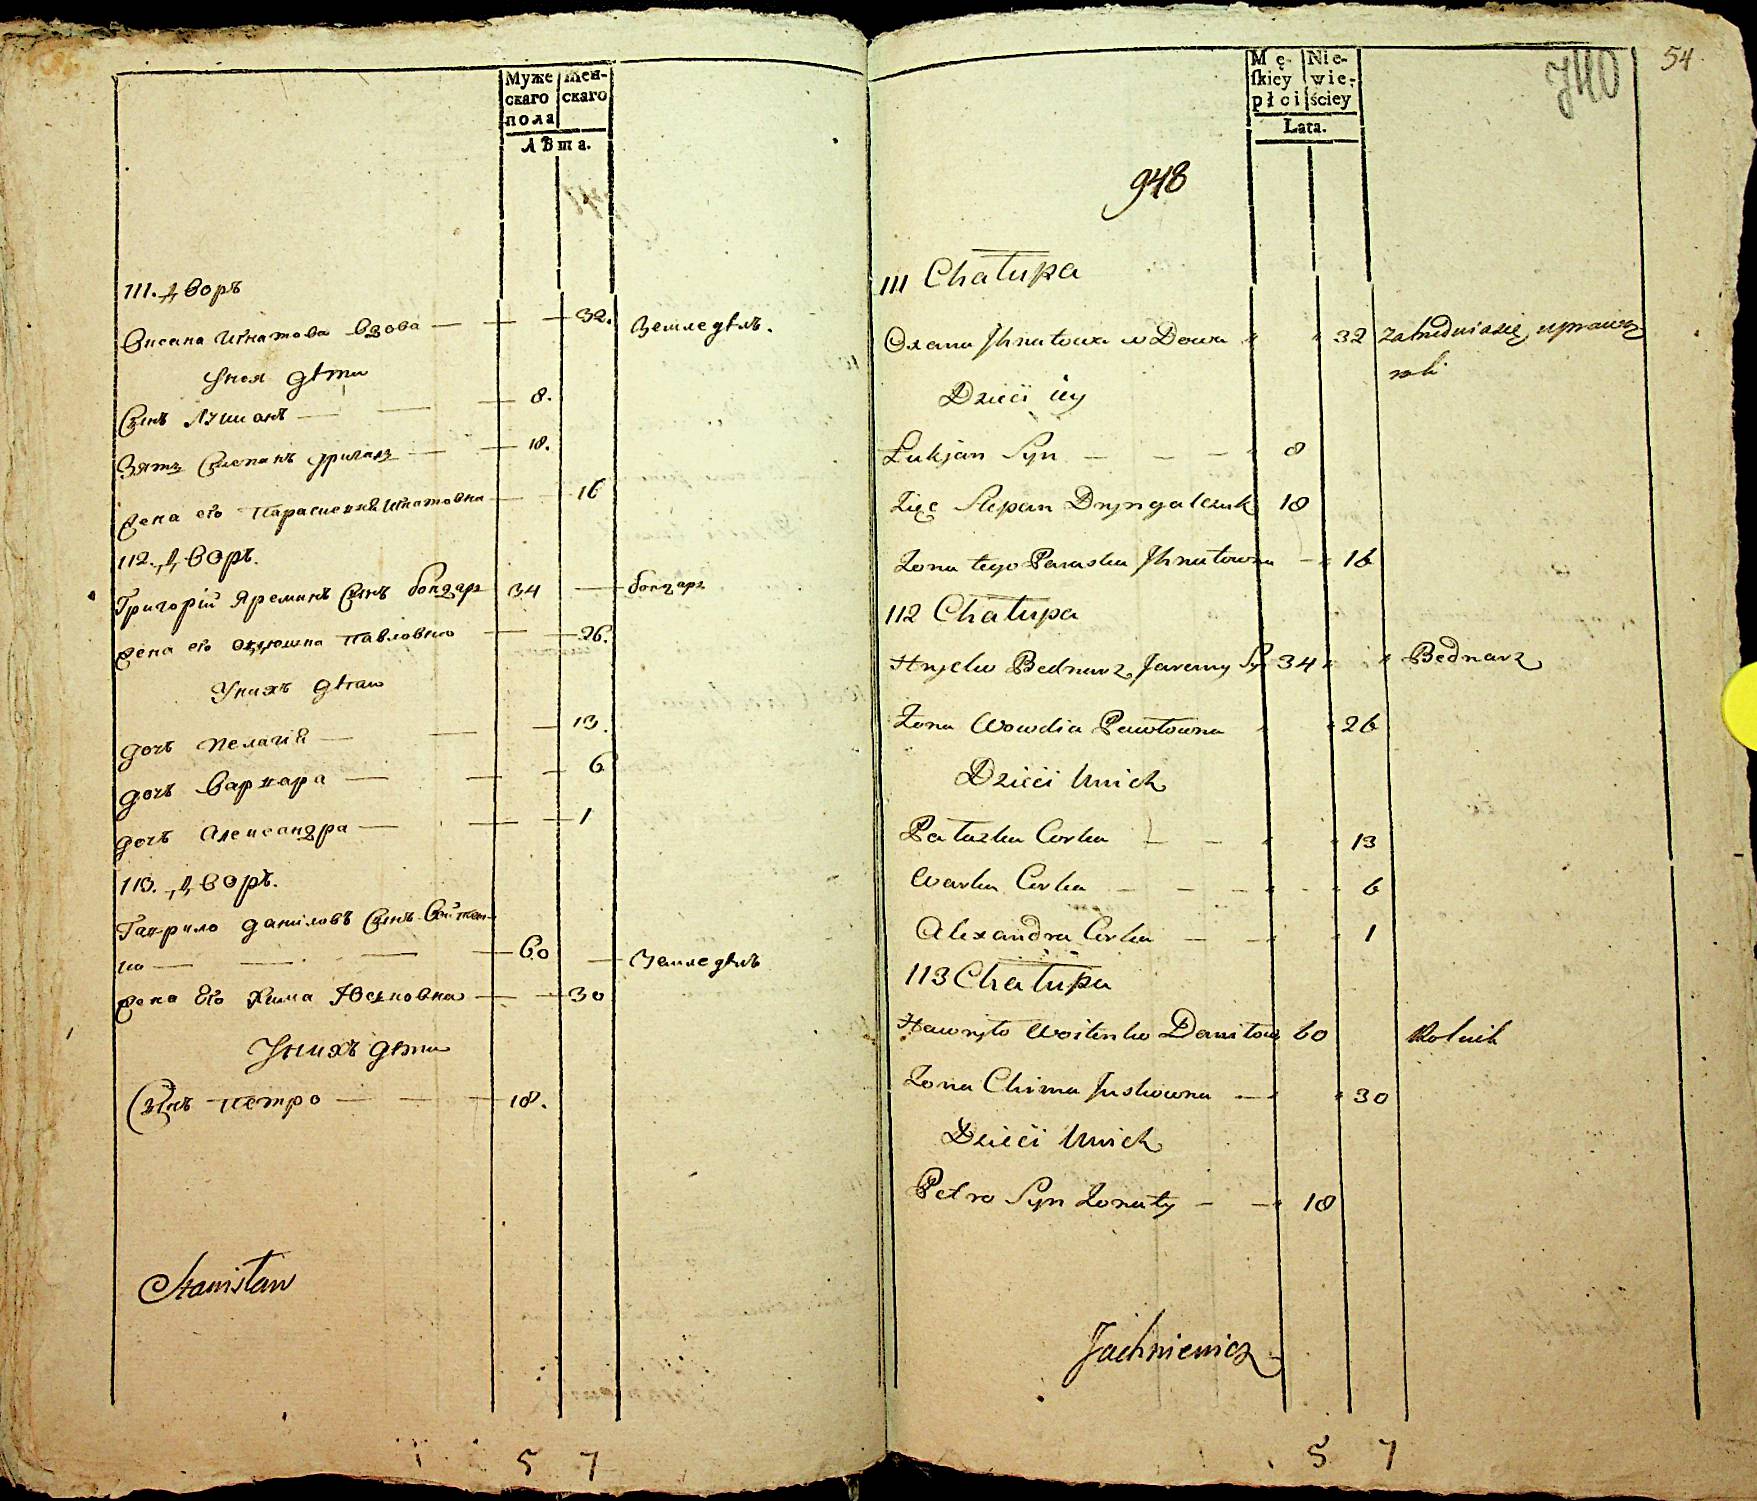 Муже Жен-
скаго скаго
пола
Лѣта.
111. Дворъ
Оксана Игнатова вдова — — — 32. Земледѣлъ.
Унея дѣти
Сынъ Лукианъ — — — 8.
Зять Степанъ — — 18.
жена его Параскевия Игнатовна — — 16
112. Дворъ.
Григорій Яреминъ Сынъ бондаръ 34 — бондаръ
жена его Павловна — — 26.
Унихъ дѣти
дочь Пелагія — — — 13.
дочь Варвара — — — 6
дочь Александра — — — 1
113. Дворъ.
Гаврило Даниловъ Сынъ Войтен-
ко — — — — 60 — Земледѣлъ
жена Его Хима Юсковна — — 30
Унихъ дѣти
Сынъ Петро — — — 18.
Stanisław
5 7
54
740
Mę- Nie-
skiey wie-
płci ściey
Lata.
948
111 Chałupa
Oxana Ihnatowa wDowa " " 32 zatrudnia się uprawą
roli
Dzieci iey
Łukjan Syn — — — " 8
Zięć Stepan Dryngalczuk 18
Żona tego Paraska Ihnatowna — " 16
112 Chałupa
Hryćko Bednarz Jaremy Sy 34 " " Bednarz
Żona Wowdia Pawłowna " " 26
Dzieci Unich
Pałazka Corka — — " " 13
Warka Corka — — — " - " 6
Alexandra Corka — — " " 1
113 Chałupa
Hawryło Woitenko Daniłow 60 Rolnik
Żona Chima Juskowna — " " 30
Dzieci Unich
Petro Syn Żonaty — — " 18
Jachniewicz
5 7